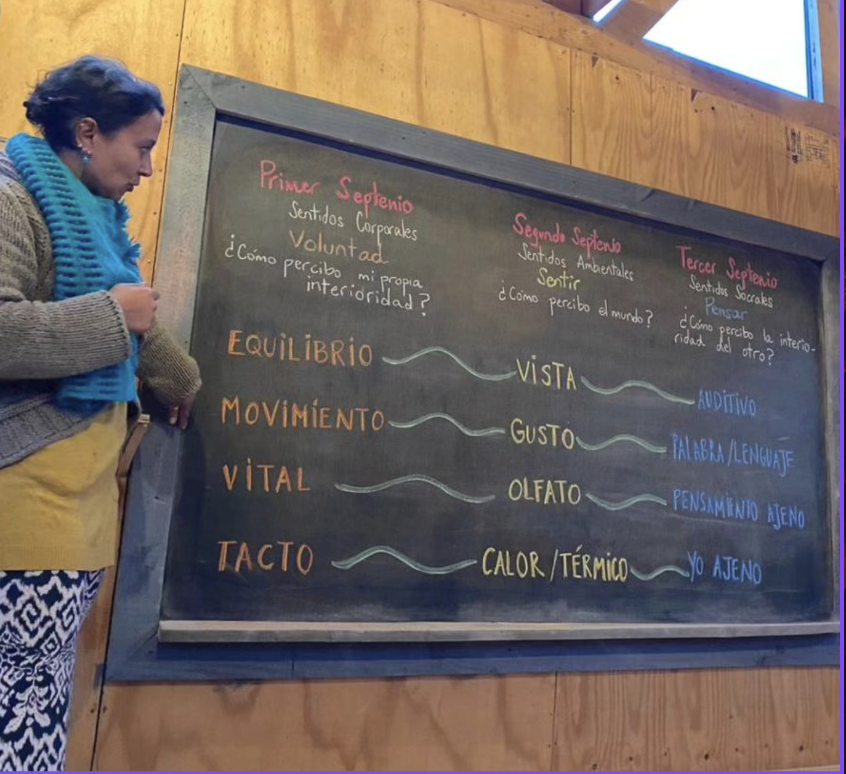 Primer Septenio
Sentidos Corporales
Voluntad
¿Cómo percibo mi propia
interioridad?
Segundo Septenio
Sentidos Ambientales
Sentir
¿Cómo percibo el mundo?
Tercer Septenio
Sentidos Sociales
Pensar
¿Cómo percibo la interio-
ridad del otro?
EQUILIBRIO VISTA AUDITIVO
MOVIMIENTO GUSTO PALABRA/LENGUAJE
VITAL OLFATO PENSAMIENTO AJENO
TACTO CALOR/TÉRMICO YO AJENO